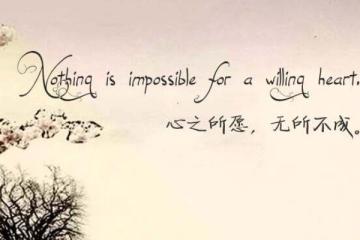 Nothing is impossible for a willing heart.
心之所愿，无所不成。